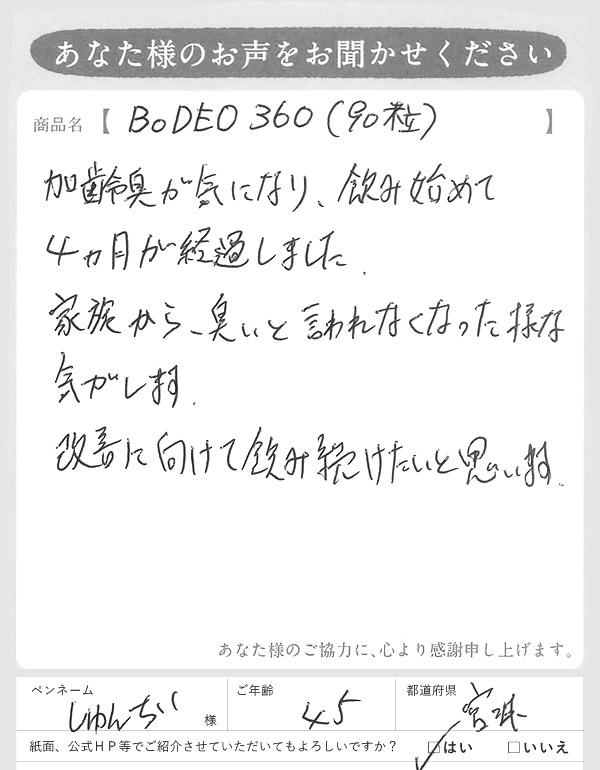 あなた様のお声をお聞かせください
商品名【 BoDEO 360 (90粒) 】
加齢臭が気になり、飲み始めて
4ヵ月が経過しました.
家族から、臭いと言われなくなった様な
気がします.
改善に向けて飲み続けたいと思います.
あなた様のご協力に、心より感謝申し上げます。
ペンネーム しゅんぢい 様 ご年齢 45 都道府県 宮城
紙面、公式HP等でご紹介させていただいてもよろしいですか? □はい □いいえ